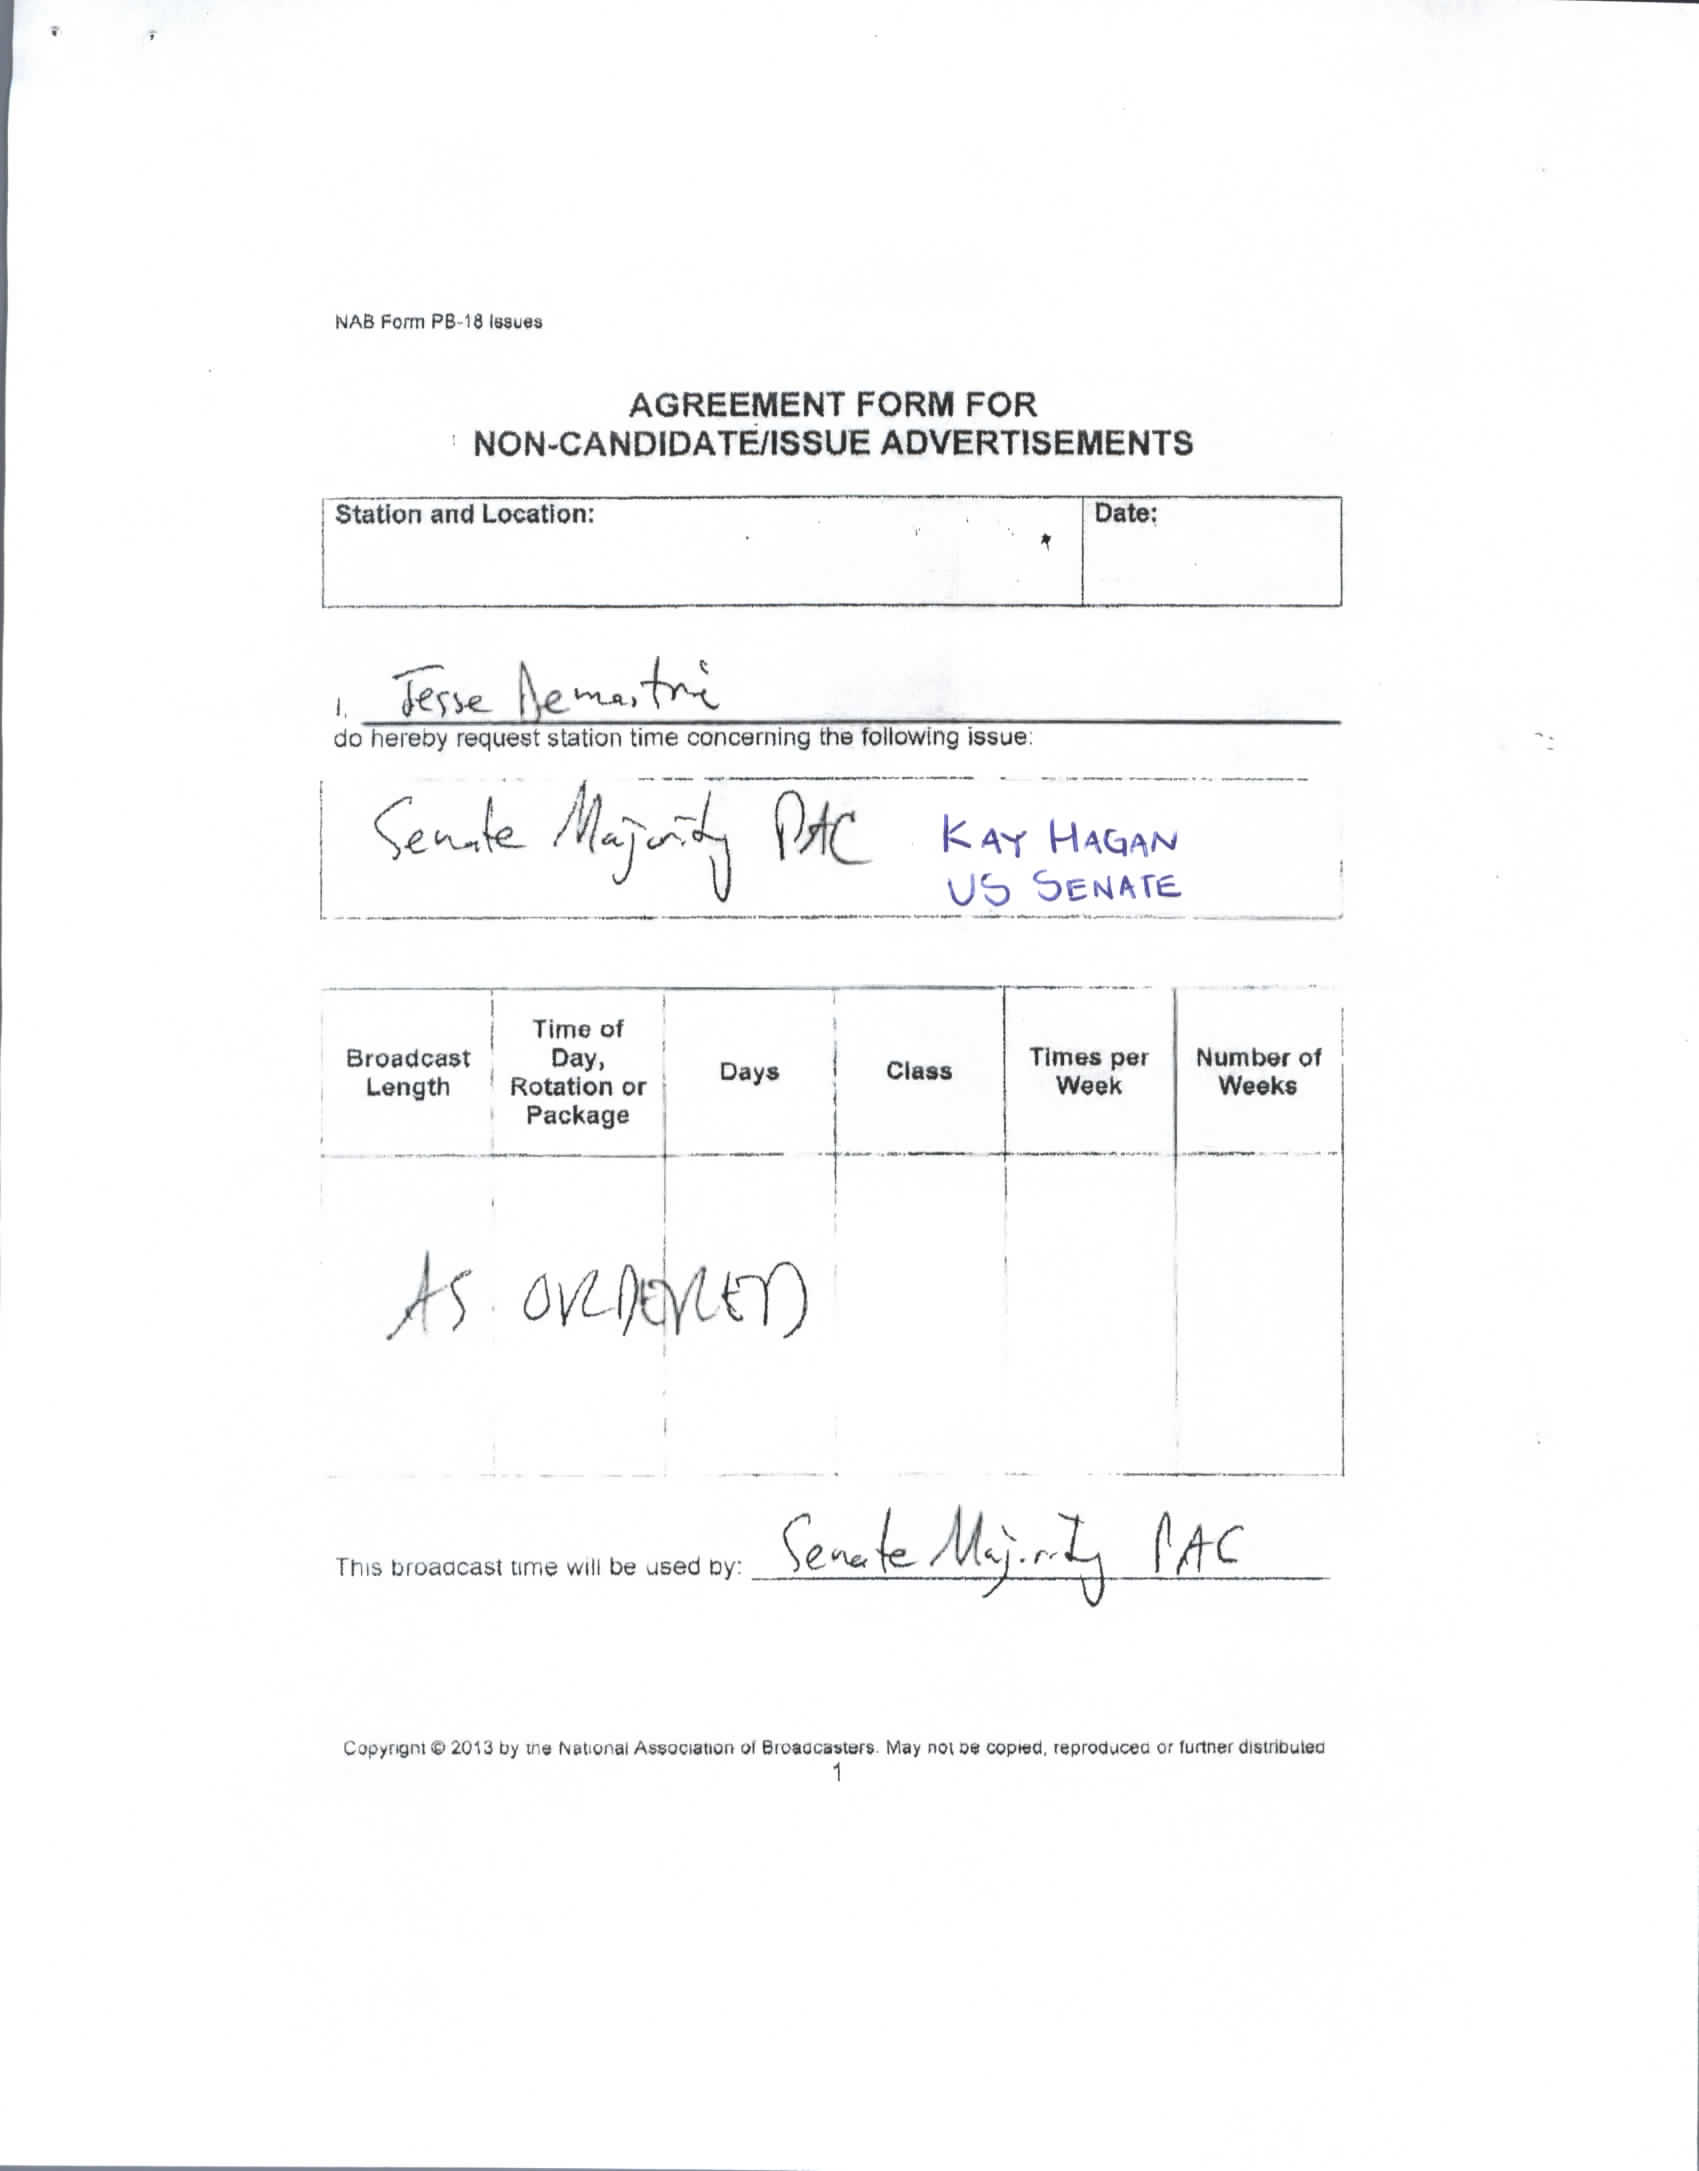 NAB Form PB-18 Issues
AGREEMENT FORM FOR
NON-CANDIDATE/ISSUE ADVERTISEMENTS
Station and Location: Date:
I, Jesse Demastri
do hereby request station time concerning the following issue:
Senate Majority PAC KAY HAGAN
US SENATE
Broadcast Length
Time of Day, Rotation or Package
Days
Class
Times per Week
Number of Weeks
AS ORDERED
This broadcast time will be used by: Senate Majority PAC
Copyright © 2013 by the National Association of Broadcasters. May not be copied, reproduced or further distributed
1